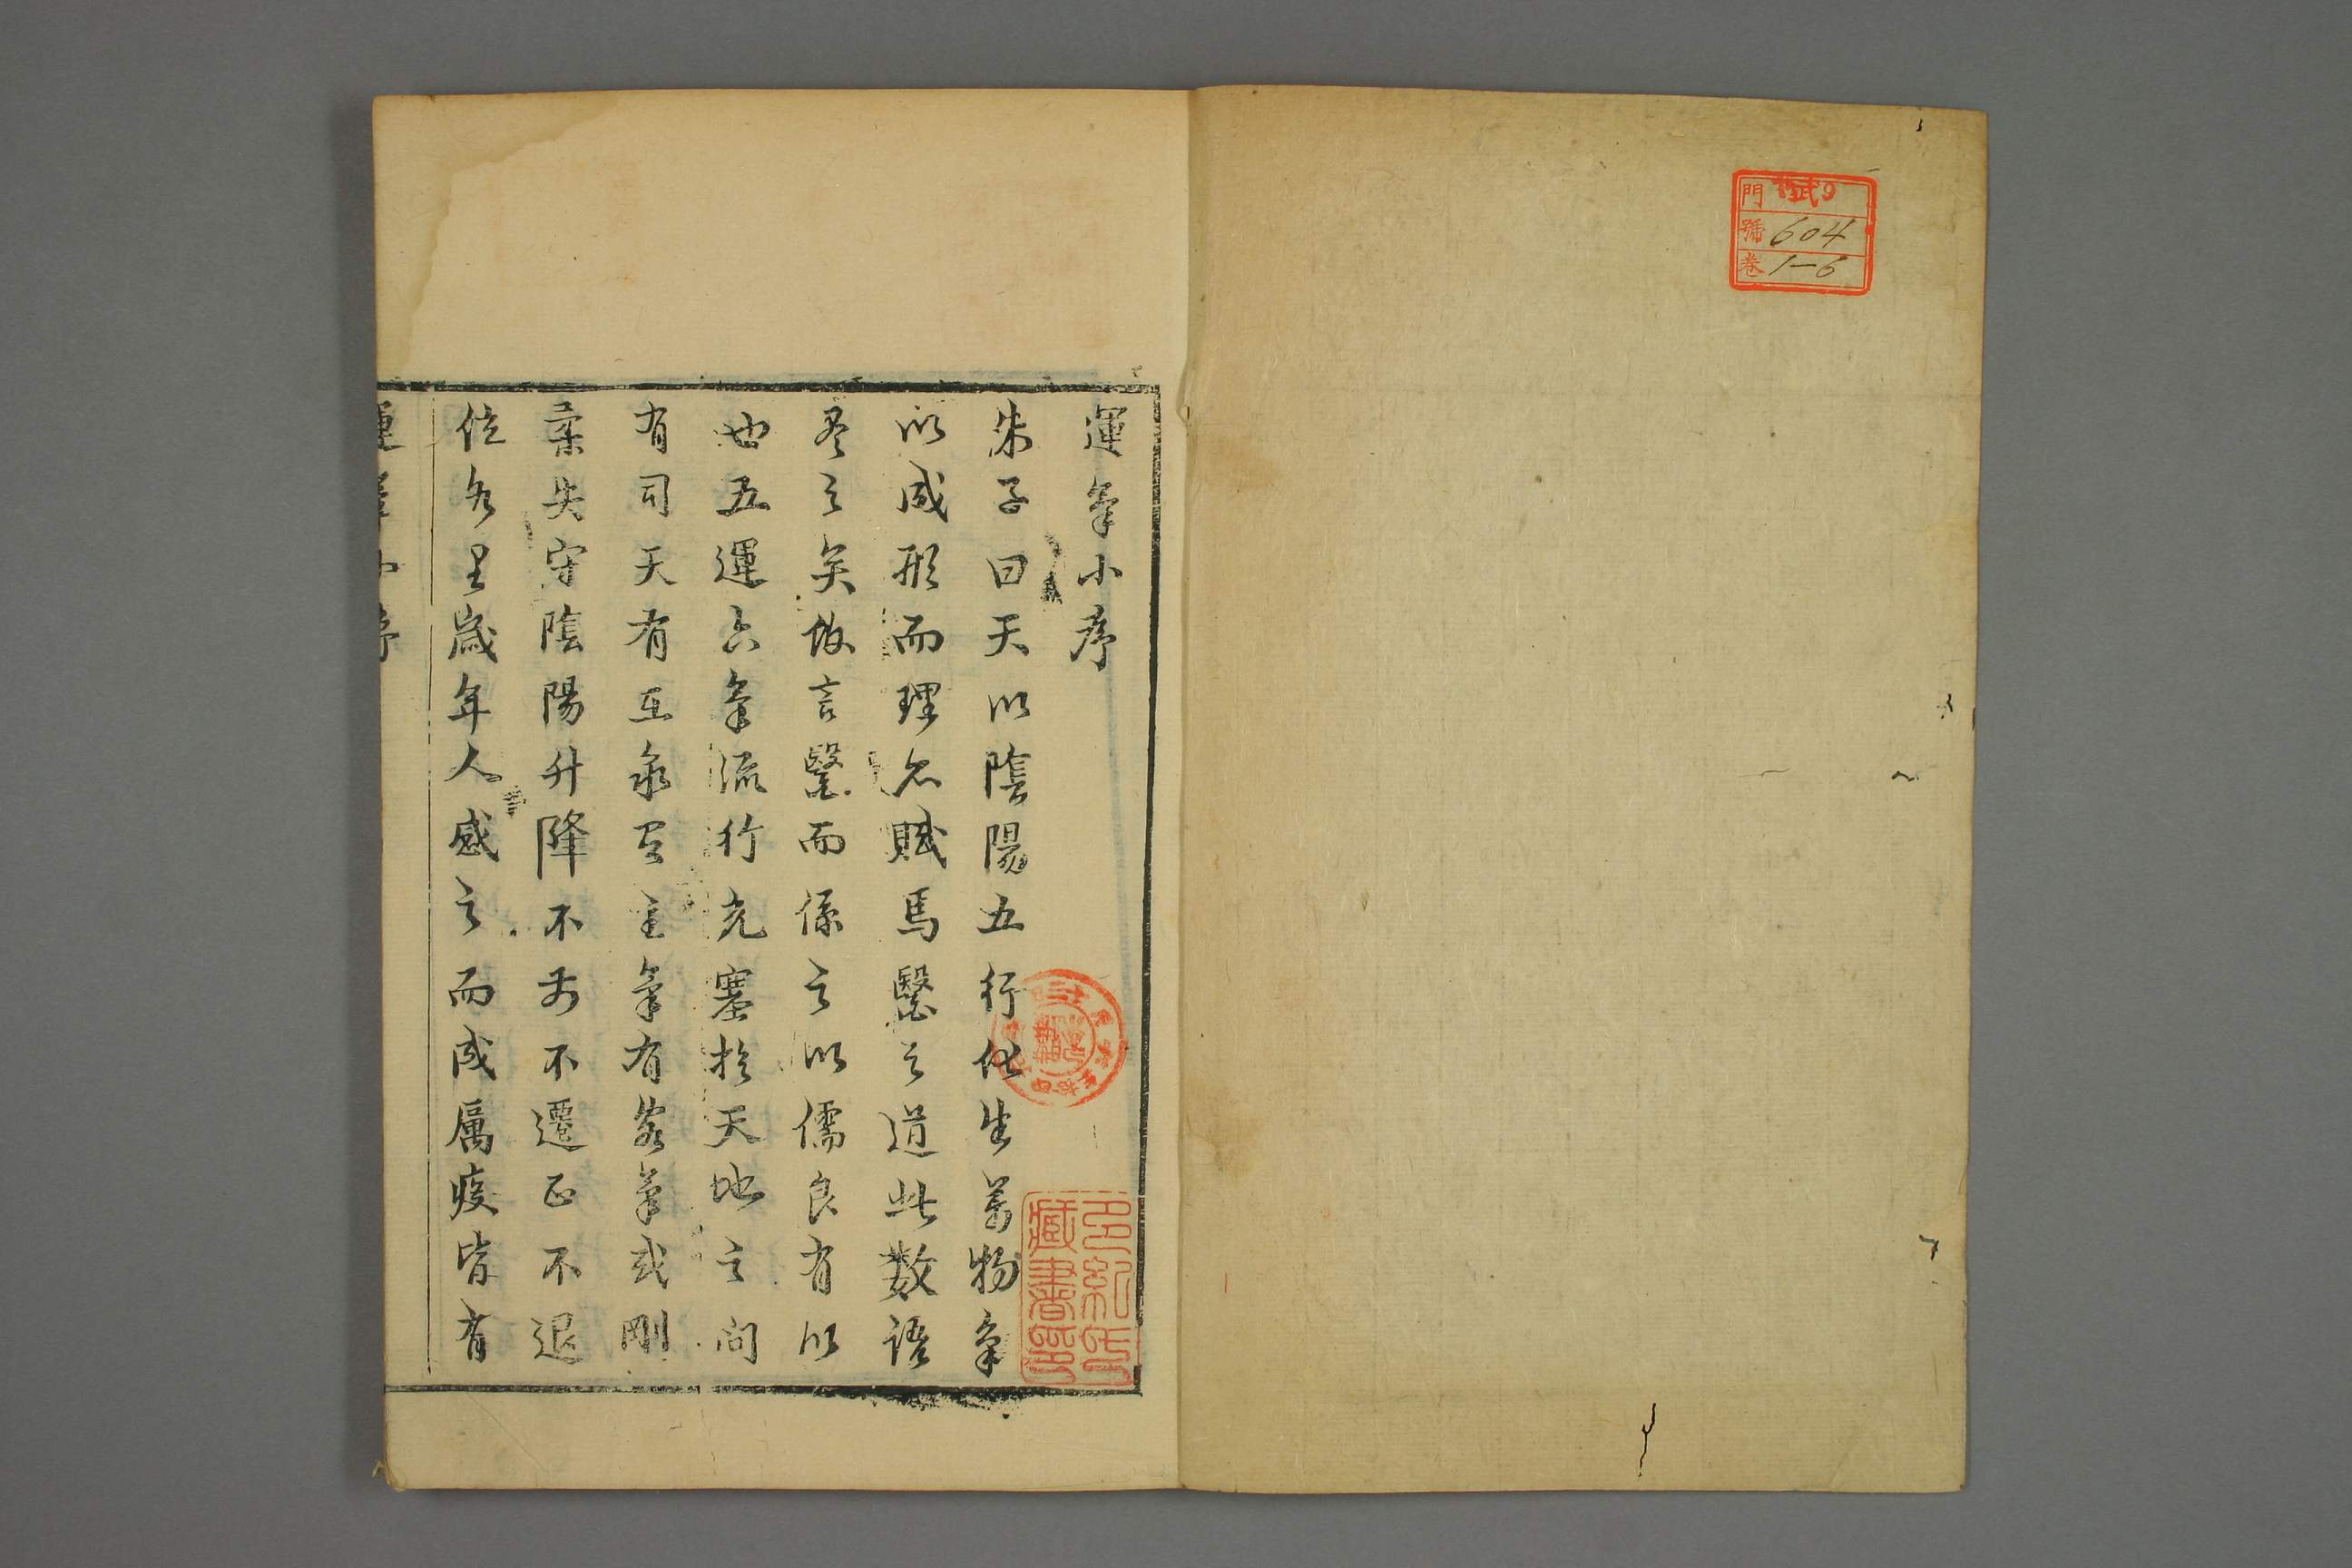 門
號 604
卷 1-6
運氣小序
朱子曰天以陰陽五行化生萬物氣
以成形而理亦賦焉醫之道此數語
盡之矣故言醫而係之以儒良有以
也五運六氣流行充塞扵天地之间
有司天有在泉有主氣有客氣或剛
柔失守陰陽升降不前不遷正不退
位各呈歲年人感之而成厲疫皆有
運氣小序
多紀氏
藏書印